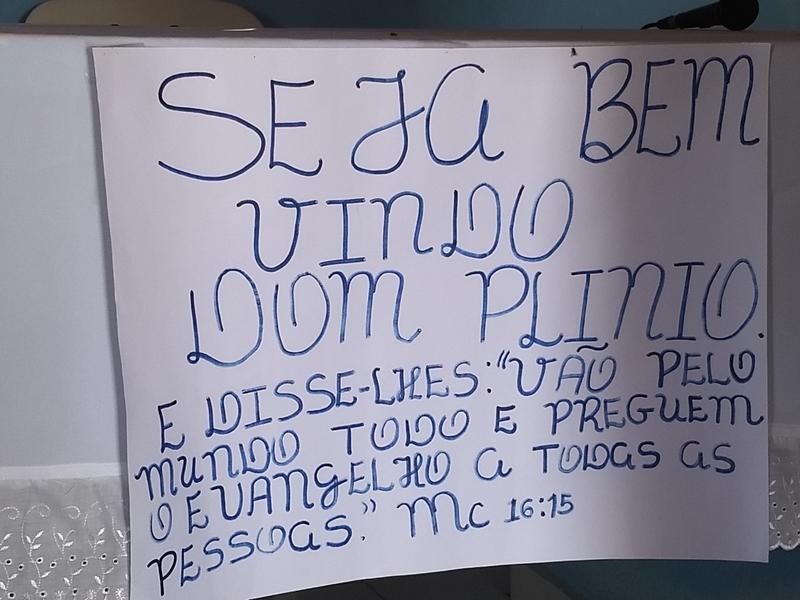 SEJA BEM
VINDO
DOM PLINIO.
E DISSE-LHES: "VÃO PELO
MUNDO TODO E PREGUEM
O EVANGELHO A TODAS AS
PESSOAS." Mc 16:15